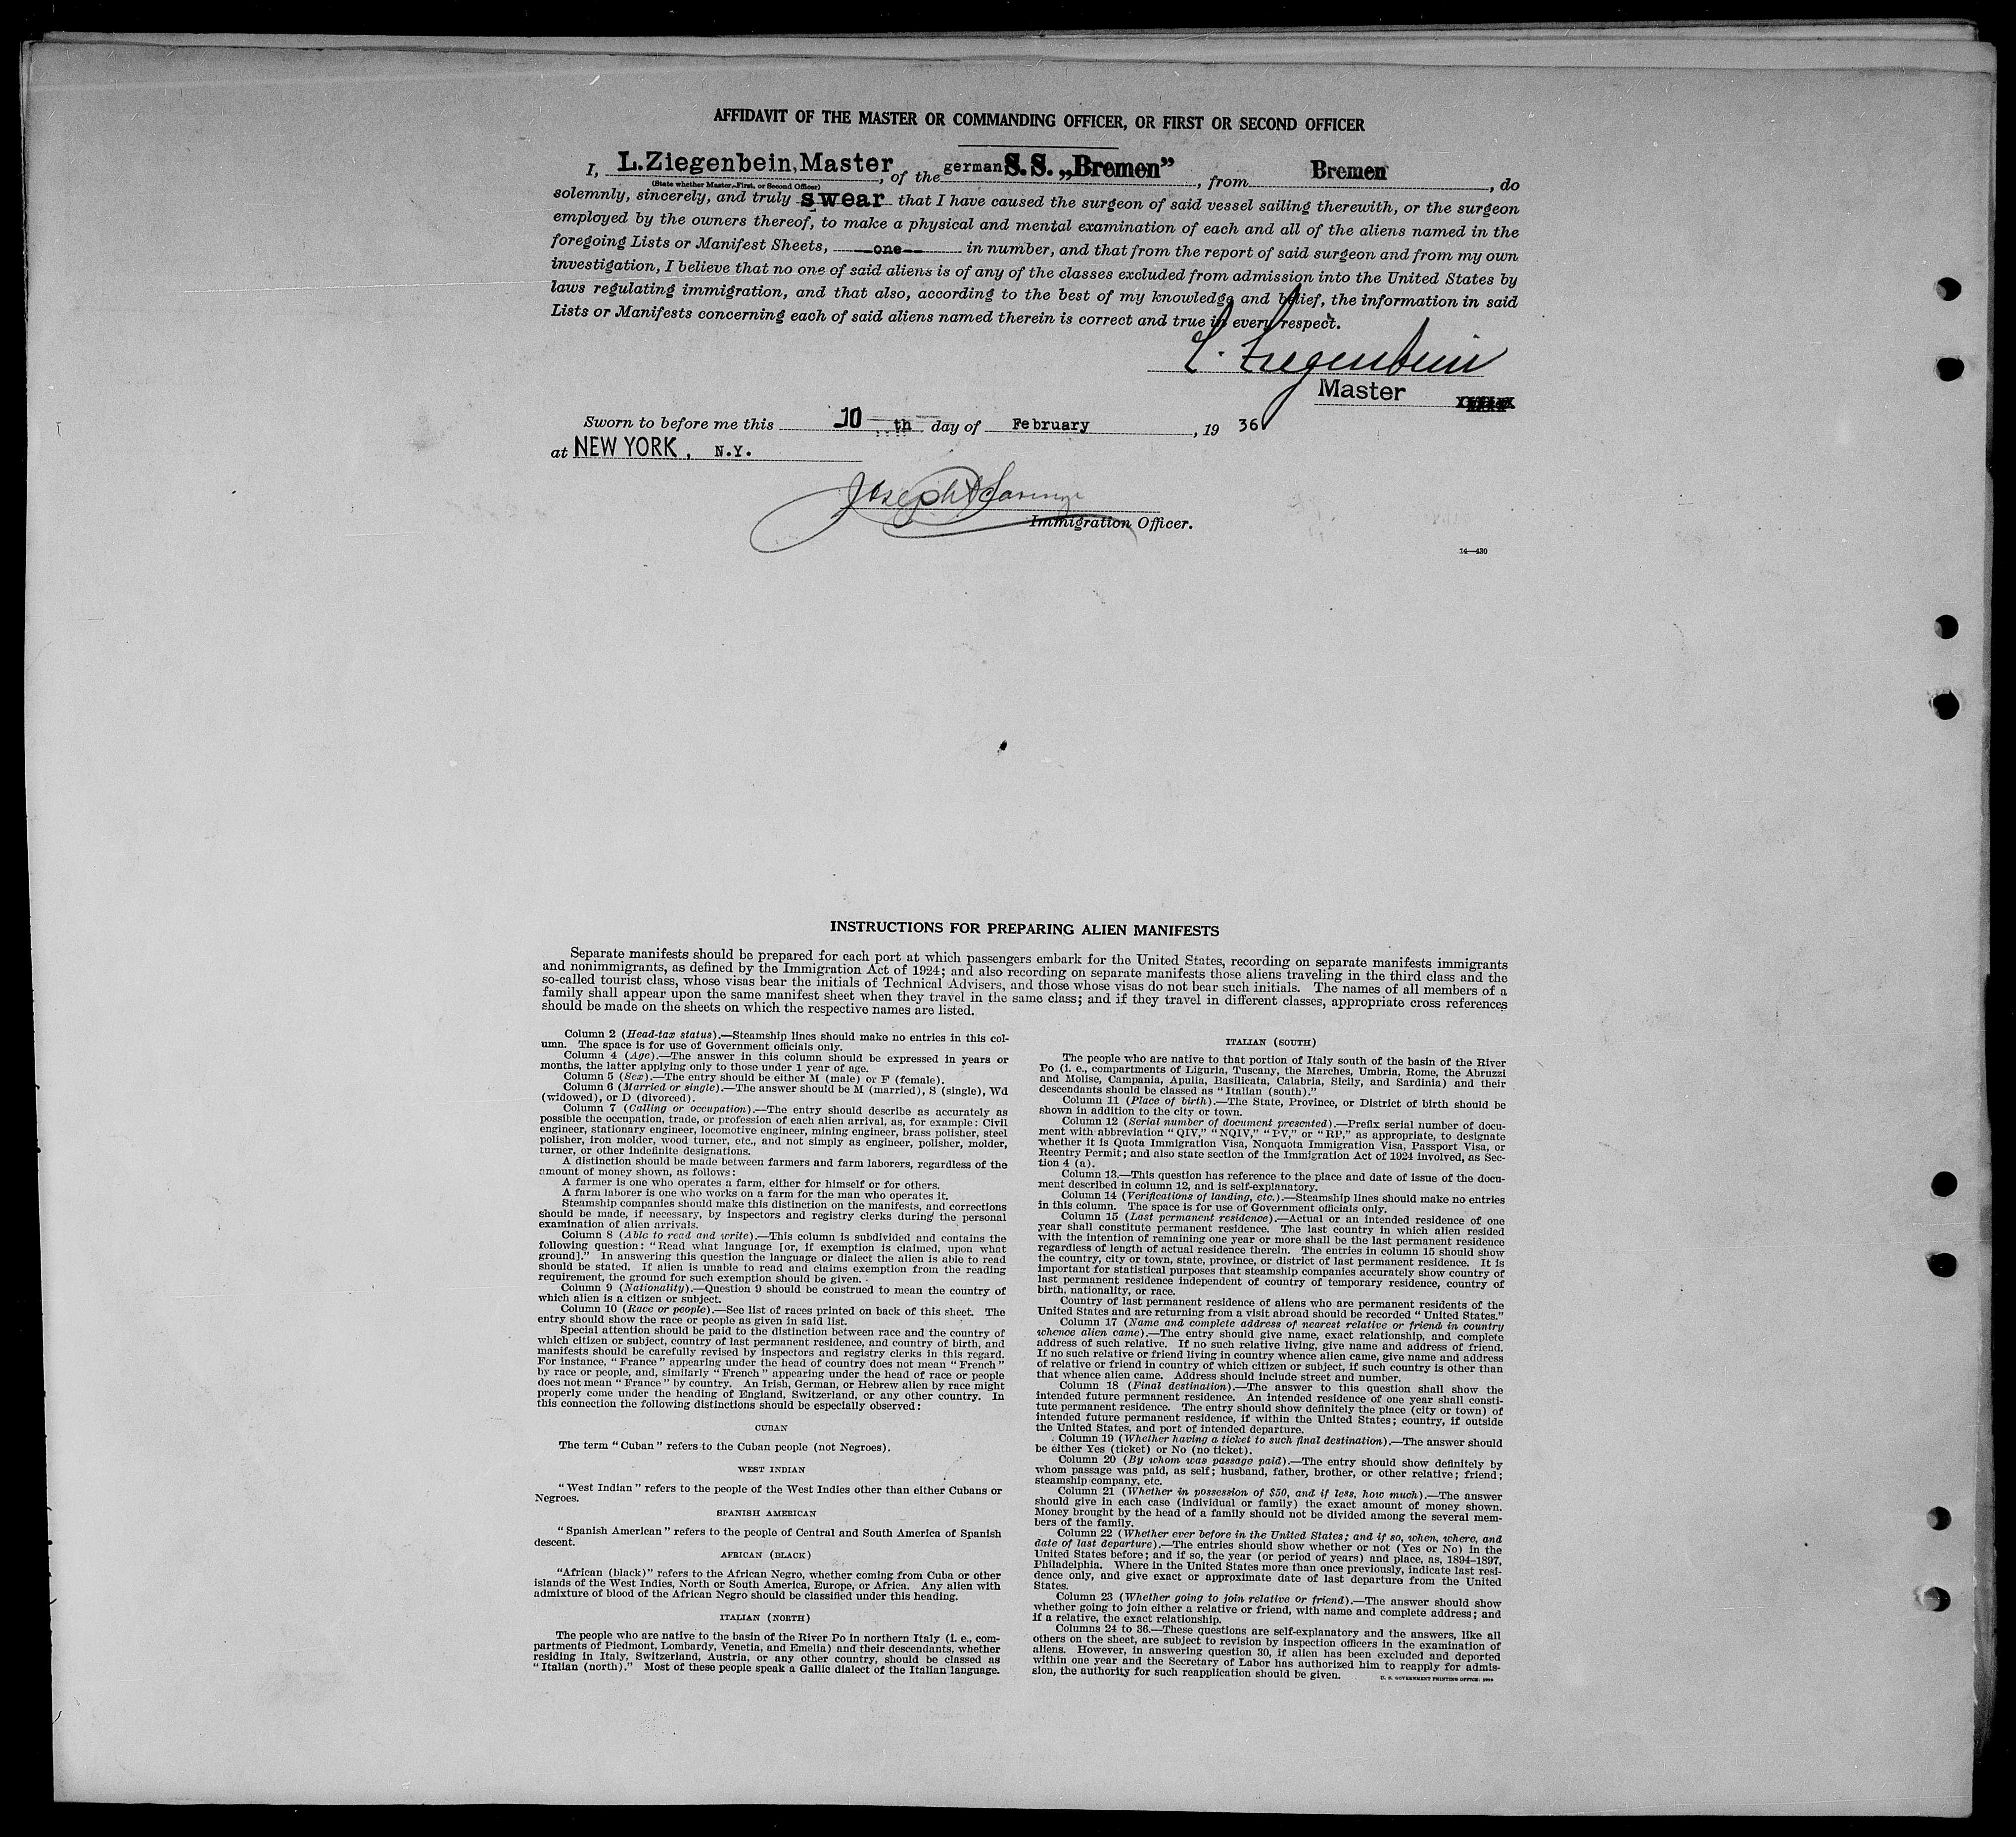 AFFIDAVIT OF THE MASTER OR COMMANDING OFFICER, OR FIRST OR SECOND OFFICER
I, L.Ziegenbein, Master, of the german S. S. „Bremen”, from Bremen, do
(State whether Master, First, or Second Officer)
solemnly, sincerely, and truly swear that I have caused the surgeon of said vessel sailing therewith, or the surgeon
employed by the owners thereof, to make a physical and mental examination of each and all of the aliens named in the
foregoing Lists or Manifest Sheets, —one— in number, and that from the report of said surgeon and from my own
investigation, I believe that no one of said aliens is of any of the classes excluded from admission into the United States by
laws regulating immigration, and that also, according to the best of my knowledge and belief, the information in said
Lists or Manifests concerning each of said aliens named therein is correct and true in every respect.
L. Ziegenbein
Master
Sworn to before me this 10 th day of February, 1936
at NEW YORK, N.Y.
Joseph
Immigration Officer.
14—430
INSTRUCTIONS FOR PREPARING ALIEN MANIFESTS
Separate manifests should be prepared for each port at which passengers embark for the United States, recording on separate manifests immigrants
and nonimmigrants, as defined by the Immigration Act of 1924; and also recording on separate manifests those aliens traveling in the third class and the
so-called tourist class, whose visas bear the initials of Technical Advisers, and those whose visas do not bear such initials. The names of all members of a
family shall appear upon the same manifest sheet when they travel in the same class; and if they travel in different classes, appropriate cross references
should be made on the sheets on which the respective names are listed.
Column 2 (Head-tax status).—Steamship lines should make no entries in this col-
umn. The space is for use of Government officials only.
Column 4 (Age).—The answer in this column should be expressed in years or
months, the latter applying only to those under 1 year of age.
Column 5 (Sex).—The entry should be either M (male) or F (female).
Column 6 (Married or single).—The answer should be M (married), S (single), Wd
(widowed), or D (divorced).
Column 7 (Calling or occupation).—The entry should describe as accurately as
possible the occupation, trade, or profession of each alien arrival, as, for example: Civil
engineer, stationary engineer, locomotive engineer, mining engineer, brass polisher, steel
polisher, iron molder, wood turner, etc., and not simply as engineer, polisher, molder,
turner, or other indefinite designations.
A distinction should be made between farmers and farm laborers, regardless of the
amount of money shown, as follows:
A farmer is one who operates a farm, either for himself or for others.
A farm laborer is one who works on a farm for the man who operates it.
Steamship companies should make this distinction on the manifests, and corrections
should be made, if necessary, by inspectors and registry clerks during the personal
examination of alien arrivals.
Column 8 (Able to read and write).—This column is subdivided and contains the
following question: “Read what language [or, if exemption is claimed, upon what
ground].” In answering this question the language or dialect the alien is able to read
should be stated. If alien is unable to read and claims exemption from the reading
requirement, the ground for such exemption should be given.
Column 9 (Nationality).—Question 9 should be construed to mean the country of
which alien is a citizen or subject.
Column 10 (Race or people).—See list of races printed on back of this sheet. The
entry should show the race or people as given in said list.
Special attention should be paid to the distinction between race and the country of
which citizen or subject, country of last permanent residence, and country of birth, and
manifests should be carefully revised by inspectors and registry clerks in this regard.
For instance, “France” appearing under the head of country does not mean “French”
by race or people, and, similarly “French” appearing under the head of race or people
does not mean “France” by country. An Irish, German, or Hebrew alien by race might
properly come under the heading of England, Switzerland, or any other country. In
this connection the following distinctions should be especially observed:
CUBAN
The term “Cuban” refers to the Cuban people (not Negroes).
WEST INDIAN
“West Indian” refers to the people of the West Indies other than either Cubans or
Negroes.
SPANISH AMERICAN
“Spanish American” refers to the people of Central and South America of Spanish
descent.
AFRICAN (BLACK)
“African (black)” refers to the African Negro, whether coming from Cuba or other
islands of the West Indies, North or South America, Europe, or Africa. Any alien with
admixture of blood of the African Negro should be classified under this heading.
ITALIAN (NORTH)
The people who are native to the basin of the River Po in northern Italy (i. e., com-
partments of Piedmont, Lombardy, Venetia, and Emelia) and their descendants, whether
residing in Italy, Switzerland, Austria, or any other country, should be classed as
“Italian (north).” Most of these people speak a Gallic dialect of the Italian language.
ITALIAN (SOUTH)
The people who are native to that portion of Italy south of the basin of the River
Po (i. e., compartments of Liguria, Tuscany, the Marches, Umbria, Rome, the Abruzzi
and Molise, Campania, Apulia, Basilicata, Calabria, Sicily, and Sardinia) and their
descendants should be classed as “Italian (south).”
Column 11 (Place of birth).—The State, Province, or District of birth should be
shown in addition to the city or town.
Column 12 (Serial number of document presented).—Prefix serial number of docu-
ment with abbreviation “QIV,” “NQIV,” “PV,” or “RP,” as appropriate, to designate
whether it is Quota Immigration Visa, Nonquota Immigration Visa, Passport Visa, or
Reentry Permit; and also state section of the Immigration Act of 1924 involved, as Sec-
tion 4 (a).
Column 13.—This question has reference to the place and date of issue of the docu-
ment described in column 12, and is self-explanatory.
Column 14 (Verifications of landing, etc.).—Steamship lines should make no entries
in this column. The space is for use of Government officials only.
Column 15 (Last permanent residence).—Actual or an intended residence of one
year shall constitute permanent residence. The last country in which alien resided
with the intention of remaining one year or more shall be the last permanent residence
regardless of length of actual residence therein. The entries in column 15 should show
the country, city or town, state, province, or district of last permanent residence. It is
important for statistical purposes that steamship companies accurately show country of
last permanent residence independent of country of temporary residence, country of
birth, nationality, or race.
Country of last permanent residence of aliens who are permanent residents of the
United States and are returning from a visit abroad should be recorded “United States.”
Column 17 (Name and complete address of nearest relative or friend in country
whence alien came).—The entry should give name, exact relationship, and complete
address of such relative. If no such relative living, give name and address of friend.
If no such relative or friend living in country whence alien came, give name and address
of relative or friend in country of which citizen or subject, if such country is other than
that whence alien came. Address should include street and number.
Column 18 (Final destination).—The answer to this question shall show the
intended future permanent residence. An intended residence of one year shall consti-
tute permanent residence. The entry should show definitely the place (city or town) of
intended future permanent residence, if within the United States; country, if outside
the United States, and port of intended departure.
Column 19 (Whether having a ticket to such final destination).—The answer should
be either Yes (ticket) or No (no ticket).
Column 20 (By whom was passage paid).—The entry should show definitely by
whom passage was paid, as self; husband, father, brother, or other relative; friend;
steamship company, etc.
Column 21 (Whether in possession of $50, and if less, how much).—The answer
should give in each case (individual or family) the exact amount of money shown.
Money brought by the head of a family should not be divided among the several mem-
bers of the family.
Column 22 (Whether ever before in the United States; and if so, when, where, and
date of last departure).—The entries should show whether or not (Yes or No) in the
United States before; and if so, the year (or period of years) and place, as, 1894–1897,
Philadelphia. Where in the United States more than once previously, indicate last resi-
dence only, and give exact or approximate date of last departure from the United
States.
Column 23 (Whether going to join relative or friend).—The answer should show
whether going to join either a relative or friend, with name and complete address; and
if a relative, the exact relationship.
Columns 24 to 36.—These questions are self-explanatory and the answers, like all
others on the sheet, are subject to revision by inspection officers in the examination of
aliens. However, in answering question 30, if alien has been excluded and deported
within one year and the Secretary of Labor has authorized him to reapply for admis-
sion, the authority for such reapplication should be given.
U. S. GOVERNMENT PRINTING OFFICE: